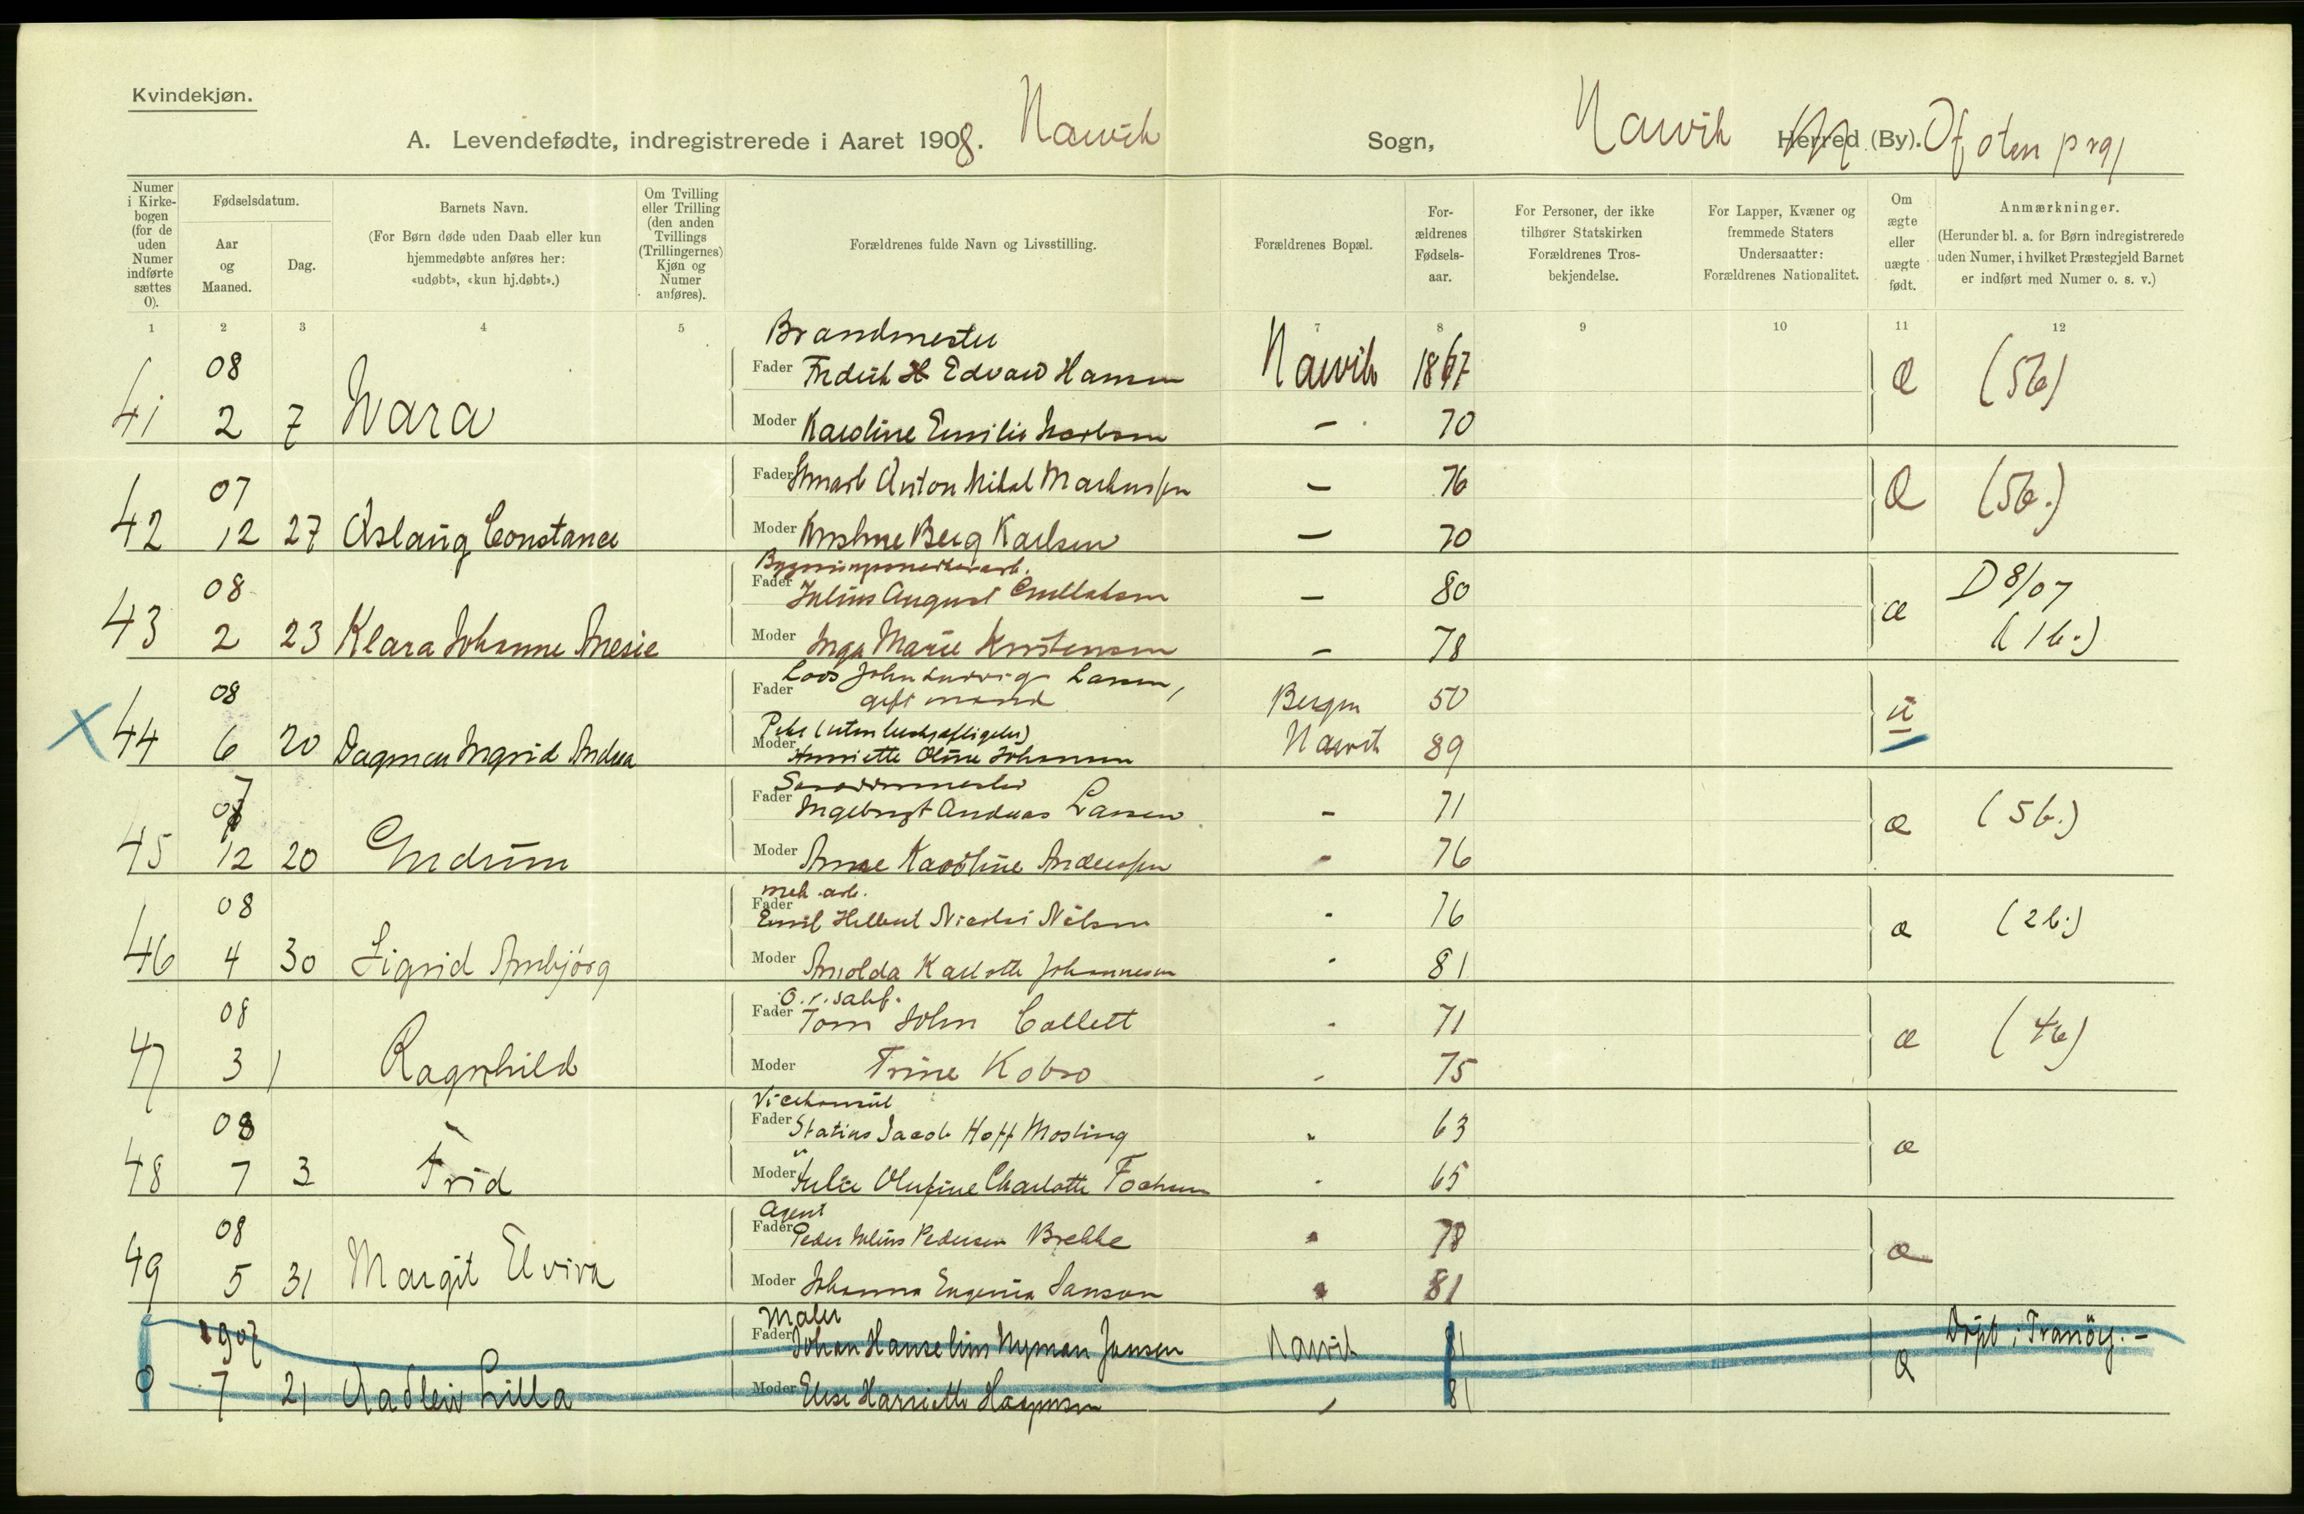 Kvindekjøn.
A. Levendefødte, indregistrerede i Aaret 1908. Narvik Sogn, Narvik Herred (By). Ofoten prgj
Numer i Kirkebogen (for de uden Numer indførte sættes 0).
Fødselsdatum.
Aar og Maaned.
Dag.
Barnets Navn.
(For Børn døde uden Daab eller kun hjemmedøbte anføres her: «udøbt», «kun hj.døbt».)
Om Tvilling eller Trilling (den anden Tvillings (Trillingernes) Kjøn og Numer anføres).
Forældrenes fulde Navn og Livsstilling.
Forældrenes Bopæl.
For-ældrenes Fødsels-aar.
For Personer, der ikke tilhører Statskirken Forældrenes Tros-bekjendelse.
For Lapper, Kvæner og fremmede Staters Undersaatter: Forældrenes Nationalitet.
Om ægte eller uægte født.
Anmærkninger.
(Herunder bl. a. for Børn indregistrerede uden Numer, i hvilket Præstegjeld Barnet er indført med Numer o. s. v.)
1 2 3 4 5 7 8 9 10 11 12
Brandmester
08 Fader Fredrik H Edvard Hansen Narvik 1867 æ (5b)
41 2 7 Ivara Moder Karoline Emilie – 70
07 Fader Anton Mikal Markussen – 76 Æ (5b.)
42 12 27 Aslaug Constance Moder Kristine Berg Karlsen – 70
08 Fader Julius August – 80 æ D 8/07
43 2 23 Klara Johanne Anesie Moder Inga Marie Kristensen – 78 (1b.)
08 Fader Lods John Ludvig Larsen, Bergen 50 u
gift mand
Pike
X 44 6 20 Dagmar Ingrid Andrea Moder Henriette Oline Johansen Narvik 89
07 Fader Ingebrigt Andreas Larsen – 71 æ (5b.)
45 12 20 Gudrun Moder Anne Karoline Anderssen " 76
mek. arb.
08 Fader Emil Nicolai Nilsen " 76 æ (2b.)
46 4 30 Sigrid Arnbjörg Moder Arnolda Karlotte Johannesen " 81
O.r.sakf.
08 Fader Tom John Collett " 71 æ (4b)
47 3 1 Ragnhild Moder Trine Kobro " 75
Vicekonsul
08 Fader Statius Jacob Hoff Mosling " 63 æ
48 7 3 Frid Moder Julie Olufine Charlotte " 65
Agent
08 Fader Peder Julius Pedersen Brekke " 78 æ
49 5 31 Margit Elvira Moder Johanna Eugenia Janson " 81
Maler
1907 Fader Johan Hanselius Nyman Jansen Narvik 81 Æ Döpt i Tranöy. –
0 7 21 Aadleiv Lilla Moder Elise Harriette " 81